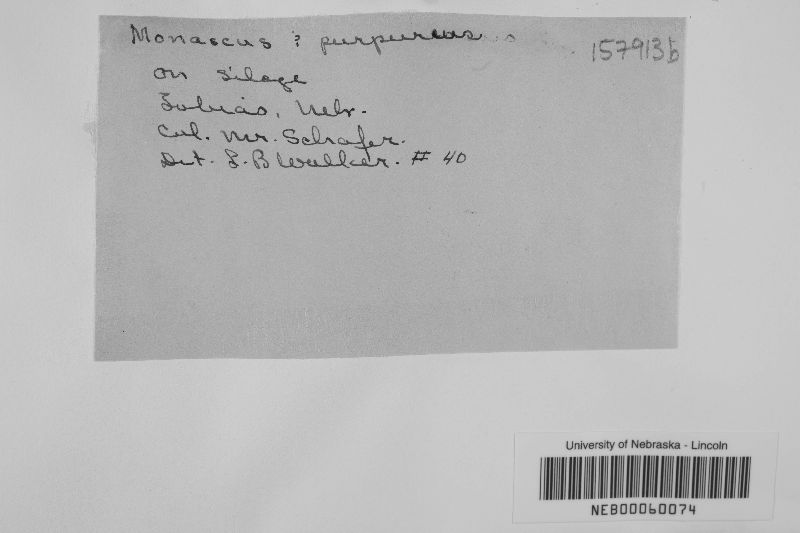 Monascus ? purpureus
157913b
on silage
Tobias, Nebr.
Col. Mr. Schafer.
Det. L.B Walker. # 40
University of Nebraska - Lincoln
NEB00060074